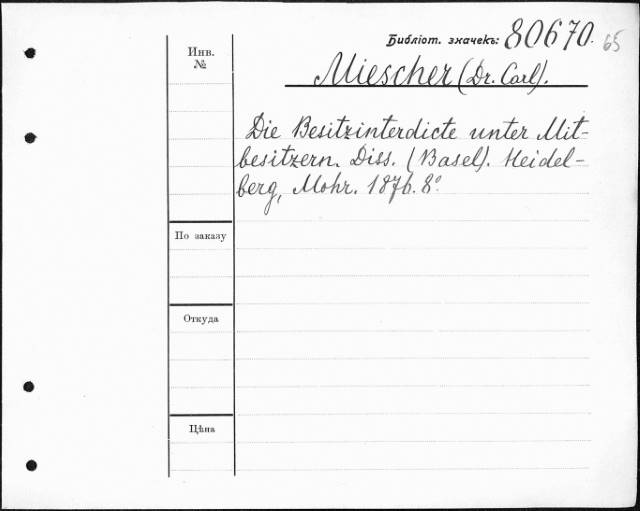 Библіот. значекъ: 80670. 65
Инв.
№
Miescher (Dr. Carl).
Die Besitzinterdicte unter Mit-
besitzern. Diss. (Basel). Heidel-
berg, Mohr. 1876. 8º
По заказу
Откуда
Цѣна